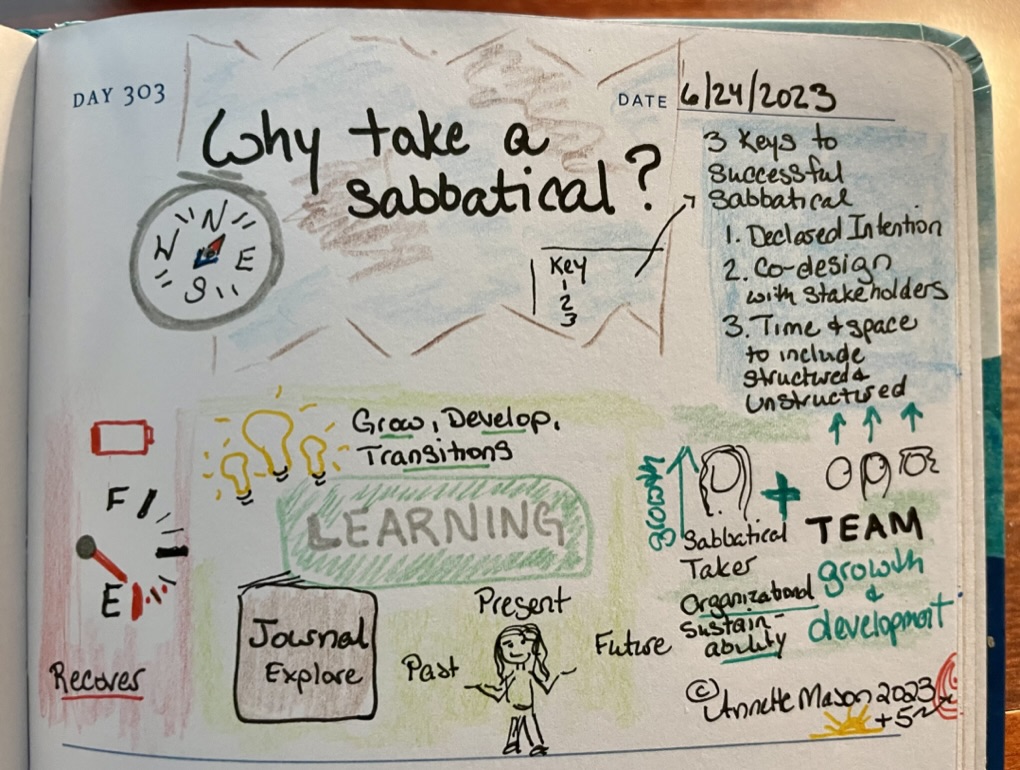 DAY 303
DATE 6/24/2023
Why take a
sabbatical?
N
W
E
S
Key
1
2
3
3 Keys to
successful
sabbatical
1. Declared Intention
2. Co-design
with stakeholders
3. Time & space
to include
structured &
unstructured
F
E
Recover
Grow, Develop,
Transitions
LEARNING
Journal
Explore
Past
Present
Future
growth
Sabbatical
Taker
Organizational
Sustain-
ability
+
TEAM
growth
&
development
© Annette Mason 2023
+5~